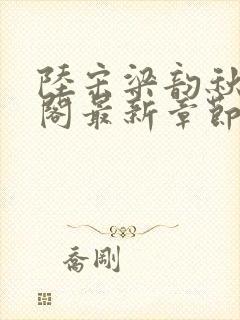 陸宗梁韵秋
閣最新章節
喬剛